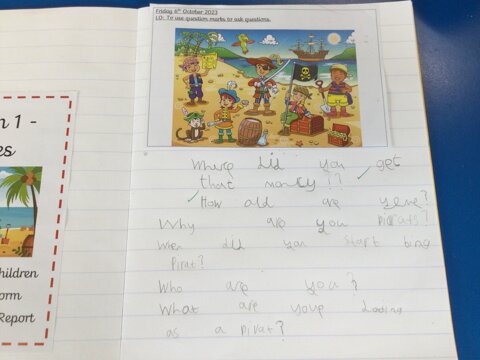 Friday 6th October 2023
LO: To use question marks to ask questions.
n 1 -
es
hildren
orm
Report
Where did you get
that money??
How old are yeve?
Why are you pirats?
When did you start bing
Pirat?
Who are you?
What are youe doing
as a pirat?